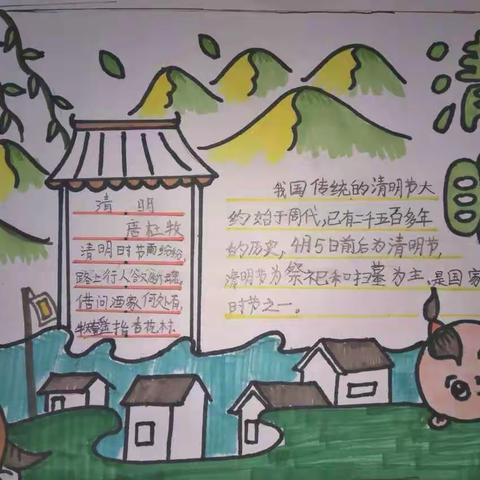 清
清 明
唐杜牧
清明时节雨纷纷,
路上行人欲断魂,
借问酒家何处有,
牧童遥指杏花村.
我国传统的清明节大
约始于周代,已有二千五百多年
的历史,4月5日前后为清明节,
清明节为祭祀和扫墓为主.是国家
时节之一。